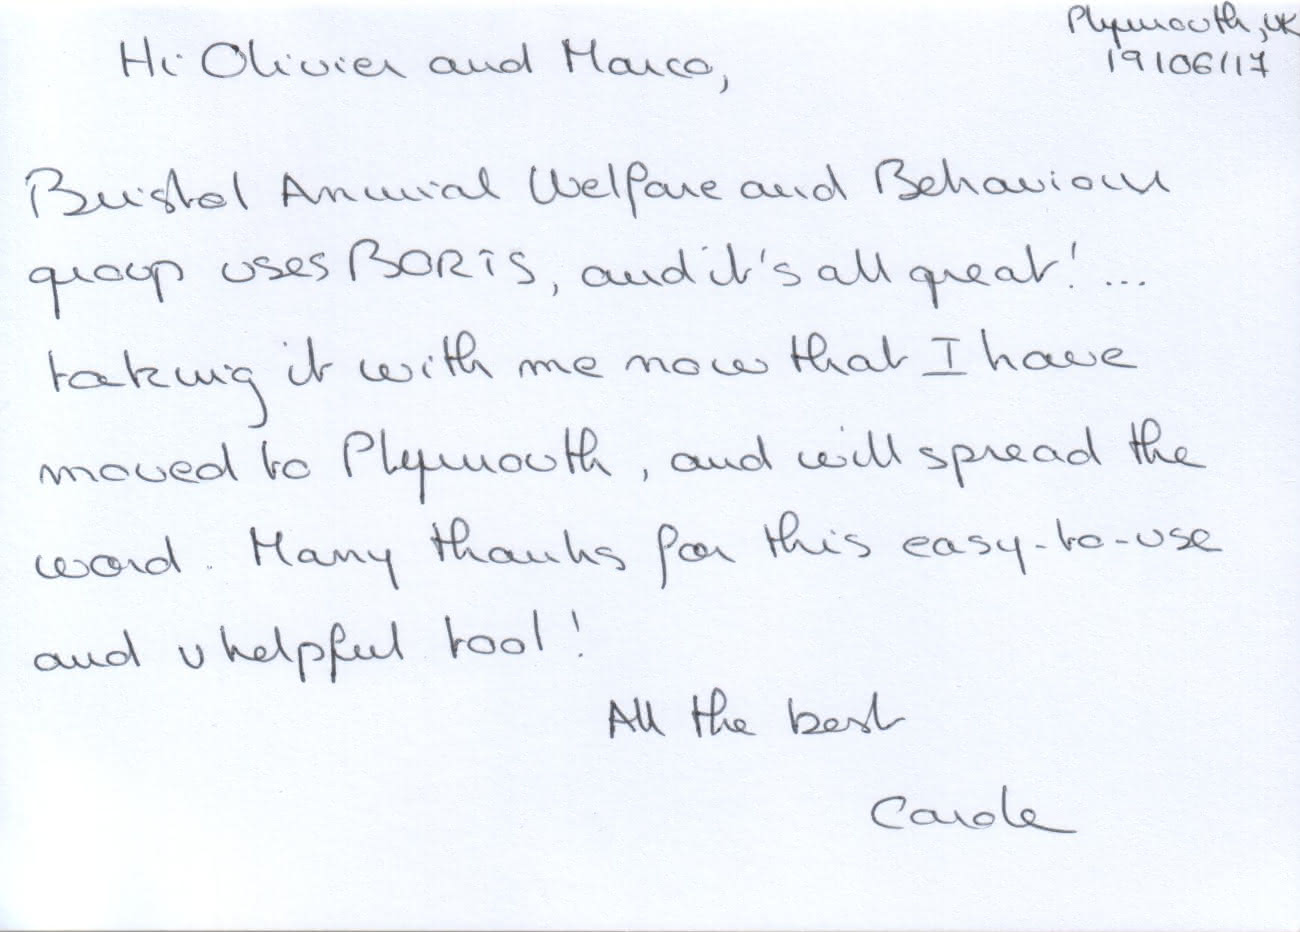 Plymouth, UK
19/06/17
Hi Olivier and Marco,
Bristol Animal Welfare and Behaviour
group uses BORIS, and it's all great! ...
taking it with me now that I have
moved to Plymouth, and will spread the
word. Many thanks for this easy-to-use
and v helpful tool!
All the best
Carole